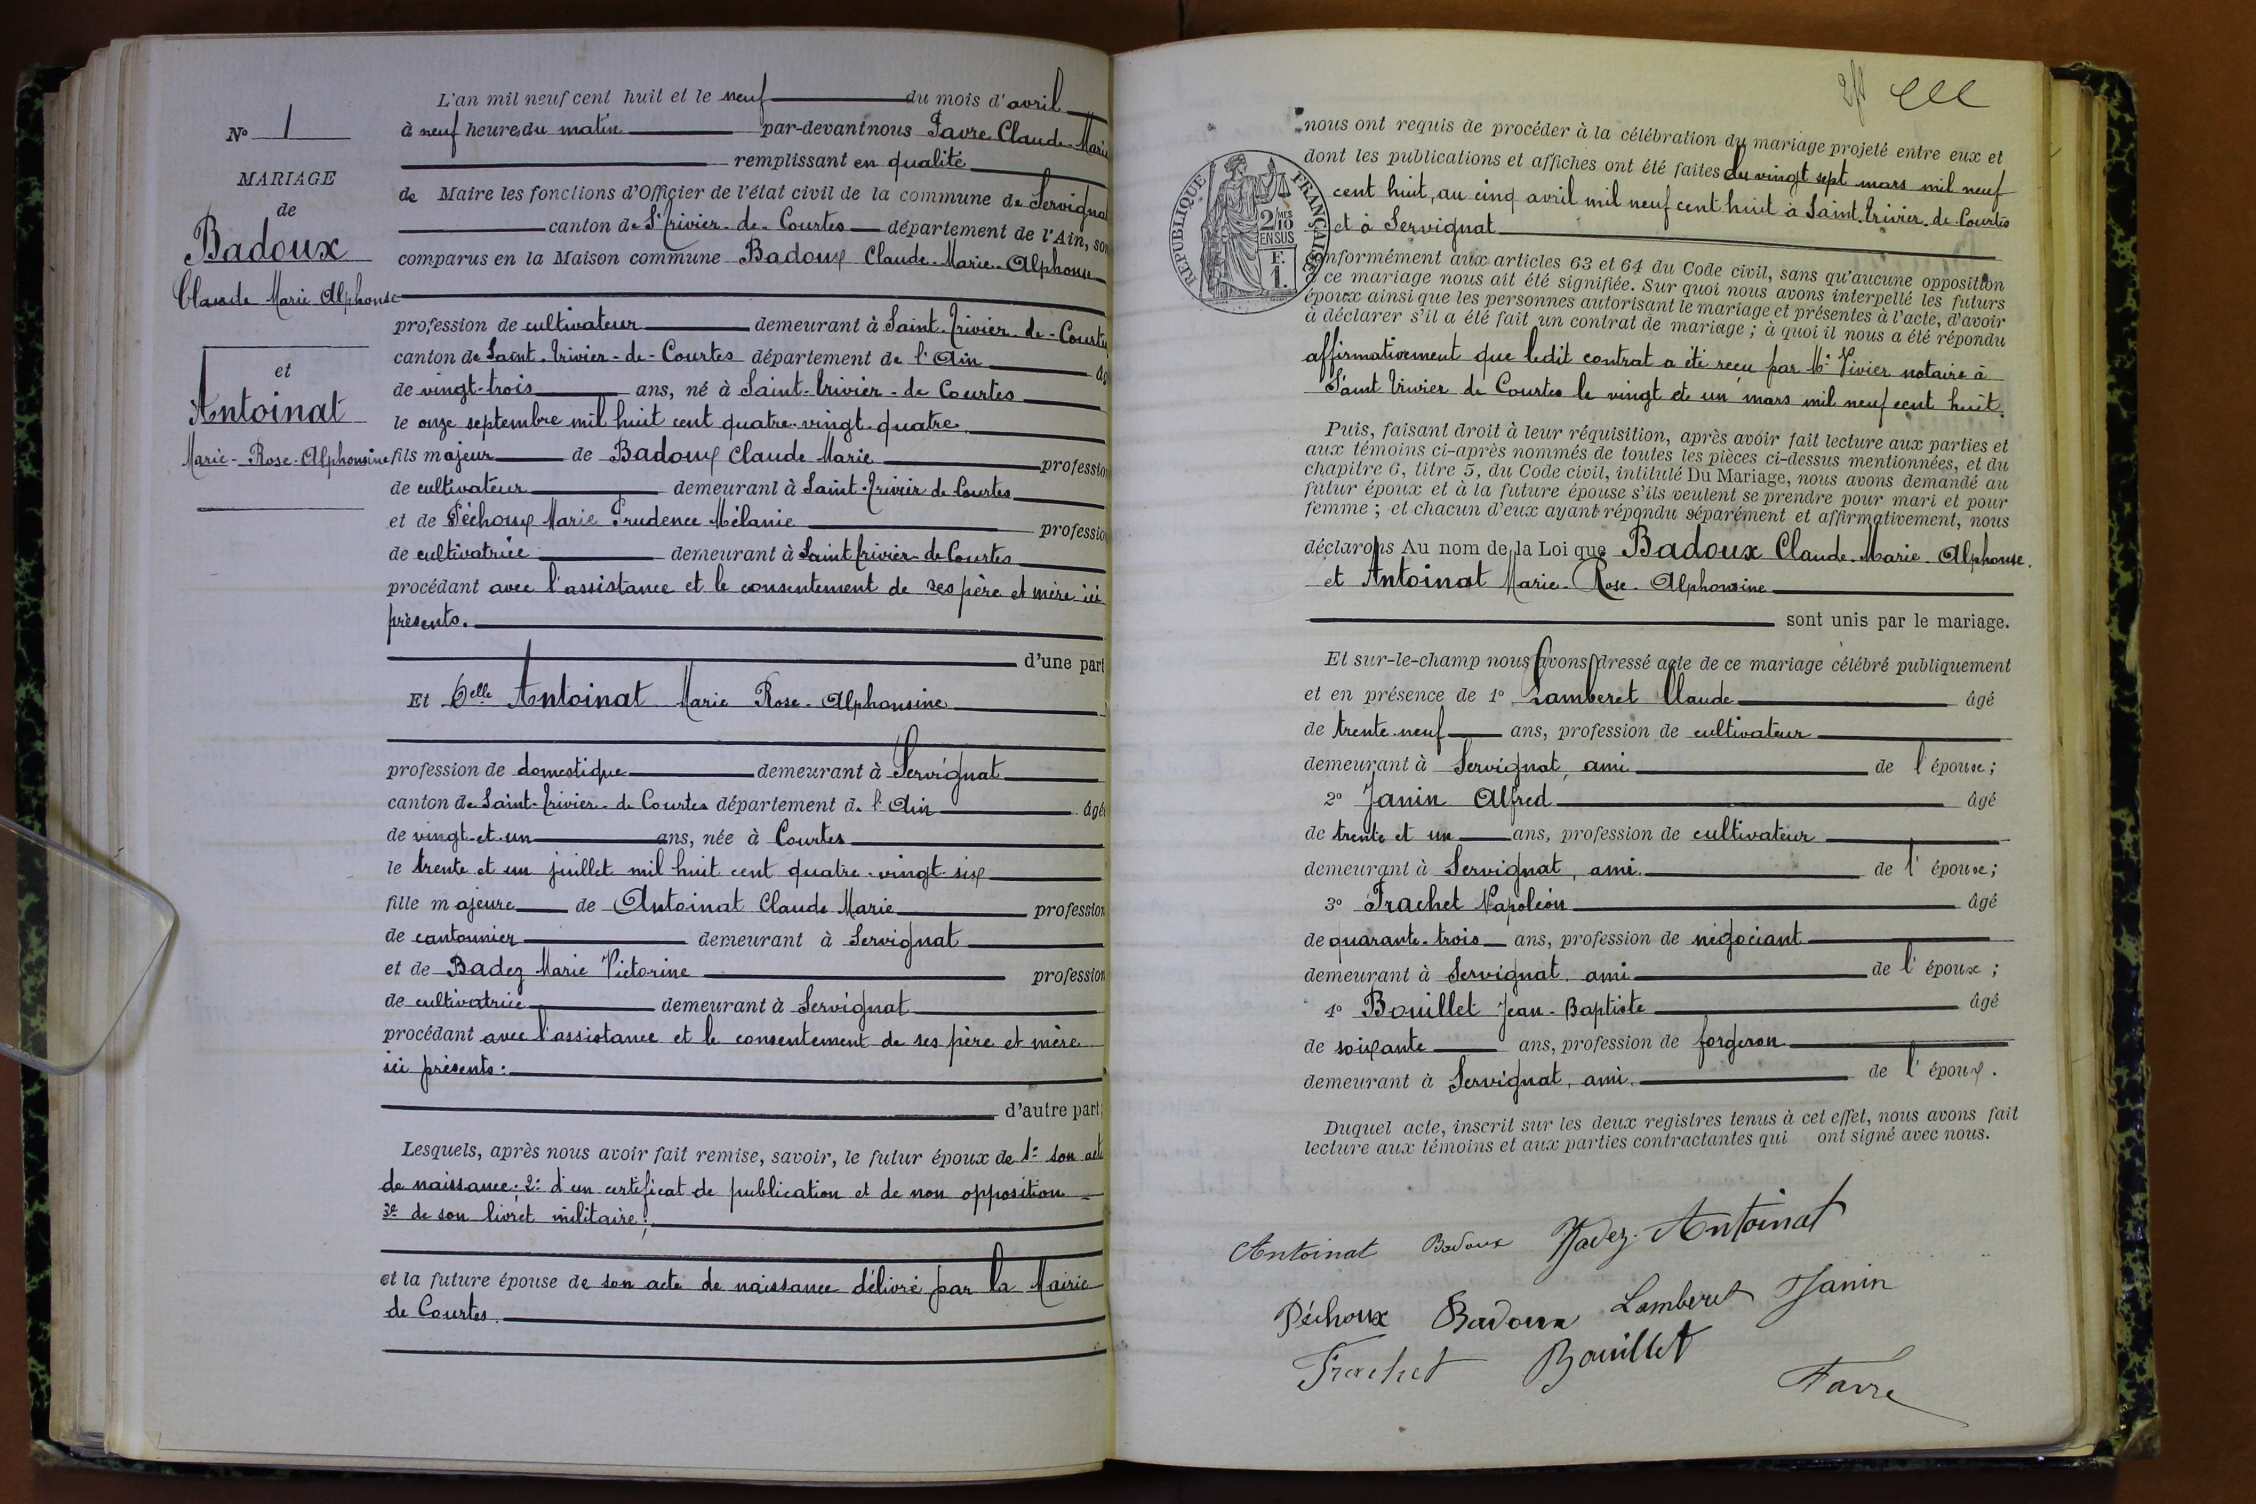 L'an mil neuf cent huit et le neuf du mois d'avril
N° 1
à neuf heures du matin par-devant nous Favre Claude-Marie
remplissant en qualité
MARIAGE
de Maire les fonctions d'Officier de l'état civil de la commune de Servignat
de
canton de St Trivier-de-Courtes département de l'Ain, son
Badoux
comparus en la Maison commune Badoux Claude-Marie-Alphonse
Claude Marie Alphonse
profession de cultivateur demeurant à Saint-Trivier-de-Courtes
canton de Saint-Trivier-de-Courtes département de l'Ain âgé
et
de vingt-trois ans, né à Saint-Trivier-de Courtes
Antoinat
le onze septembre mil huit cent quatre-vingt-quatre
Marie-Rose-Alphonsine
fils majeur de Badoux Claude Marie profession
de cultivateur demeurant à Saint-Trivier de Courtes
et de Péchoux Marie Prudence Mélanie profession
de cultivatrice demeurant à Saint Trivier-de-Courtes
procédant avec l'assistance et le consentement de ses père et mère ici
présents.
d'une part
Et Delle Antoinat Marie Rose-Alphonsine
profession de domestique demeurant à Servignat
canton de Saint-Trivier-de Courtes département de l'Ain âgée
de vingt-et-un ans, née à Courtes
le trente et un juillet mil huit cent quatre-vingt-six
fille majeure de Antoinat Claude Marie profession
de cantonnier demeurant à Servignat
et de Badez Marie Victorine profession
de cultivatrice demeurant à Servignat
procédant avec l'assistance et le consentement de ses père et mère
ici présents.
d'autre part;
Lesquels, après nous avoir fait remise, savoir, le futur époux de 1° son acte
de naissance; 2° d'un certificat de publication et de non opposition
3° de son livret militaire;
et la future épouse de son acte de naissance délivré par la Mairie
de Courtes.
nous ont requis de procéder à la célébration du mariage projeté entre eux et
dont les publications et affiches ont été faites du vingt sept mars mil neuf
cent huit, au cinq avril mil neuf cent huit à Saint-Trivier-de-Courtes
et à Servignat
RÉPUBLIQUE FRANÇAISE
2 MES
10
EN SUS
F.
1.
conformément aux articles 63 et 64 du Code civil, sans qu'aucune opposition
à ce mariage nous ait été signifiée. Sur quoi nous avons interpellé les futurs
époux ainsi que les personnes autorisant le mariage et présentes à l'acte, d'avoir
à déclarer s'il a été fait un contrat de mariage; à quoi il nous a été répondu
affirmativement que ledit contrat a été reçu par Me Vivier notaire à
Saint Trivier de Courtes le vingt et un mars mil neuf cent huit.
Puis, faisant droit à leur réquisition, après avoir fait lecture aux parties et
aux témoins ci-après nommés de toutes les pièces ci-dessus mentionnées, et du
chapitre 6, titre 5, du Code civil, intitulé Du Mariage, nous avons demandé au
futur époux et à la future épouse s'ils veulent se prendre pour mari et pour
femme; et chacun d'eux ayant répondu séparément et affirmativement, nous
déclarons Au nom de la Loi que Badoux Claude-Marie-Alphonse.
et Antoinat Marie-Rose-Alphonsine
sont unis par le mariage.
Et sur-le-champ nous avons dressé acte de ce mariage célébré publiquement
et en présence de 1° Lamberet Claude âgé
de trente-neuf ans, profession de cultivateur
demeurant à Servignat, ami de l'épouse;
2° Janin Alfred âgé
de trente et un ans, profession de cultivateur
demeurant à Servignat, ami de l'épouse;
3° Frachet Napoléon âgé
de quarante-trois ans, profession de négociant
demeurant à Servignat, ami de l'époux;
4° Bouillet Jean-Baptiste âgé
de soixante ans, profession de forgeron
demeurant à Servignat, ami de l'époux.
Duquel acte, inscrit sur les deux registres tenus à cet effet, nous avons fait
lecture aux témoins et aux parties contractantes qui ont signé avec nous.
Antoinat Badoux Badez-Antoinat
Péchoux Badoux Lamberet Janin
Frachet Bouillet
Favre